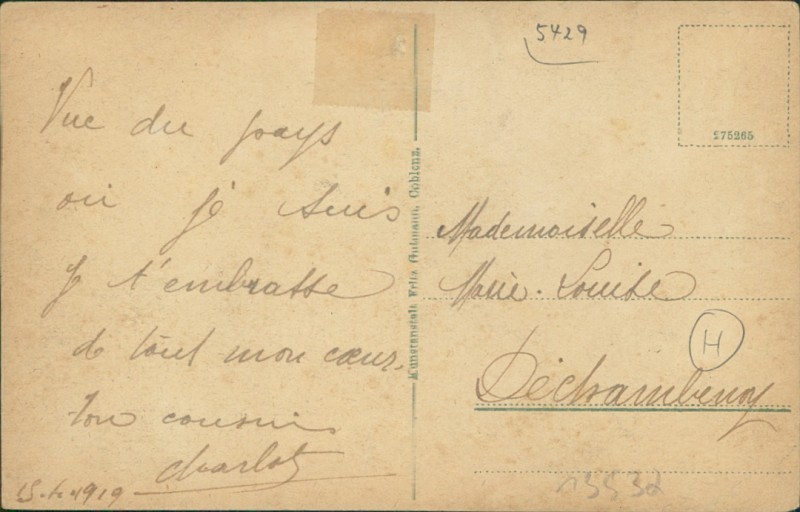 5429
275265
Vue du pays
où je suis
Je t'embrasse
de tout mon cœur.
ton cousin
Charlot
1919
Kunstanstalt Fritz Gutmann, Coblenz.
Mademoiselle
Marie-Louise
Déchambenoy
H